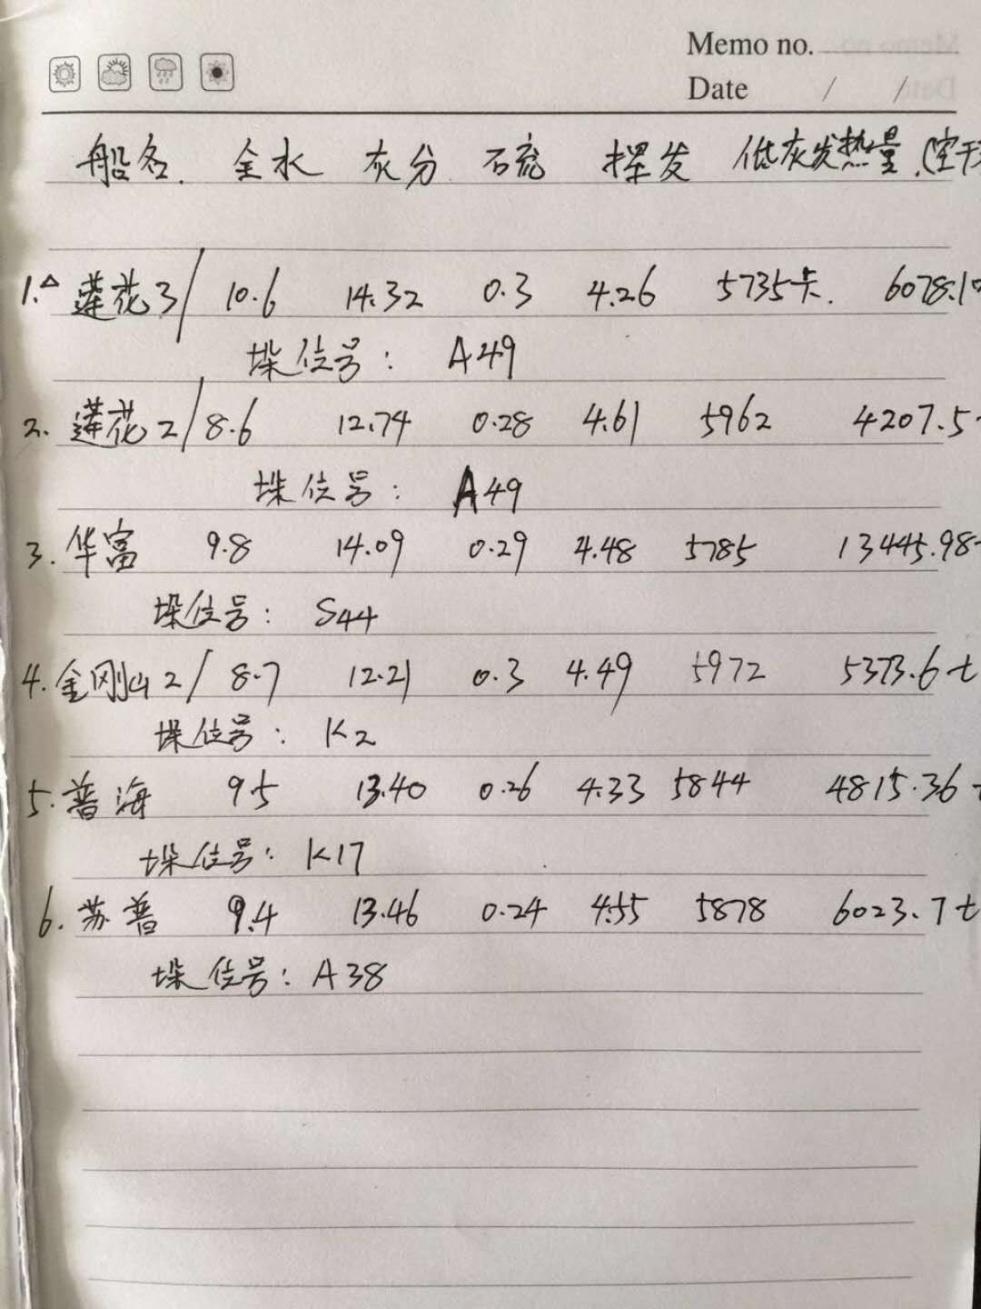 Memo no.
Date / /
船名. 全水 灰分 石硫 挥发 低灰发热量.(空干
1.△ 莲花3/ 10.6 14.32 0.3 4.26 5735卡. 6078.1
垛位号: A49
2. 莲花2/ 8.6 12.74 0.28 4.61 5962 4207.5
垛位号: A49
3. 华富 9.8 14.09 0.29 4.48 5785 13445.98
垛位号: S44
4. 金刚山2/ 8.7 12.21 0.3 4.49 5972 5373.6t
垛位号: K2
5. 普海 9.5 13.40 0.26 4.33 5844 4815.36
垛位号: K17
6. 苏普 9.4 13.46 0.24 4.55 5878 6023.7t
垛位号: A38